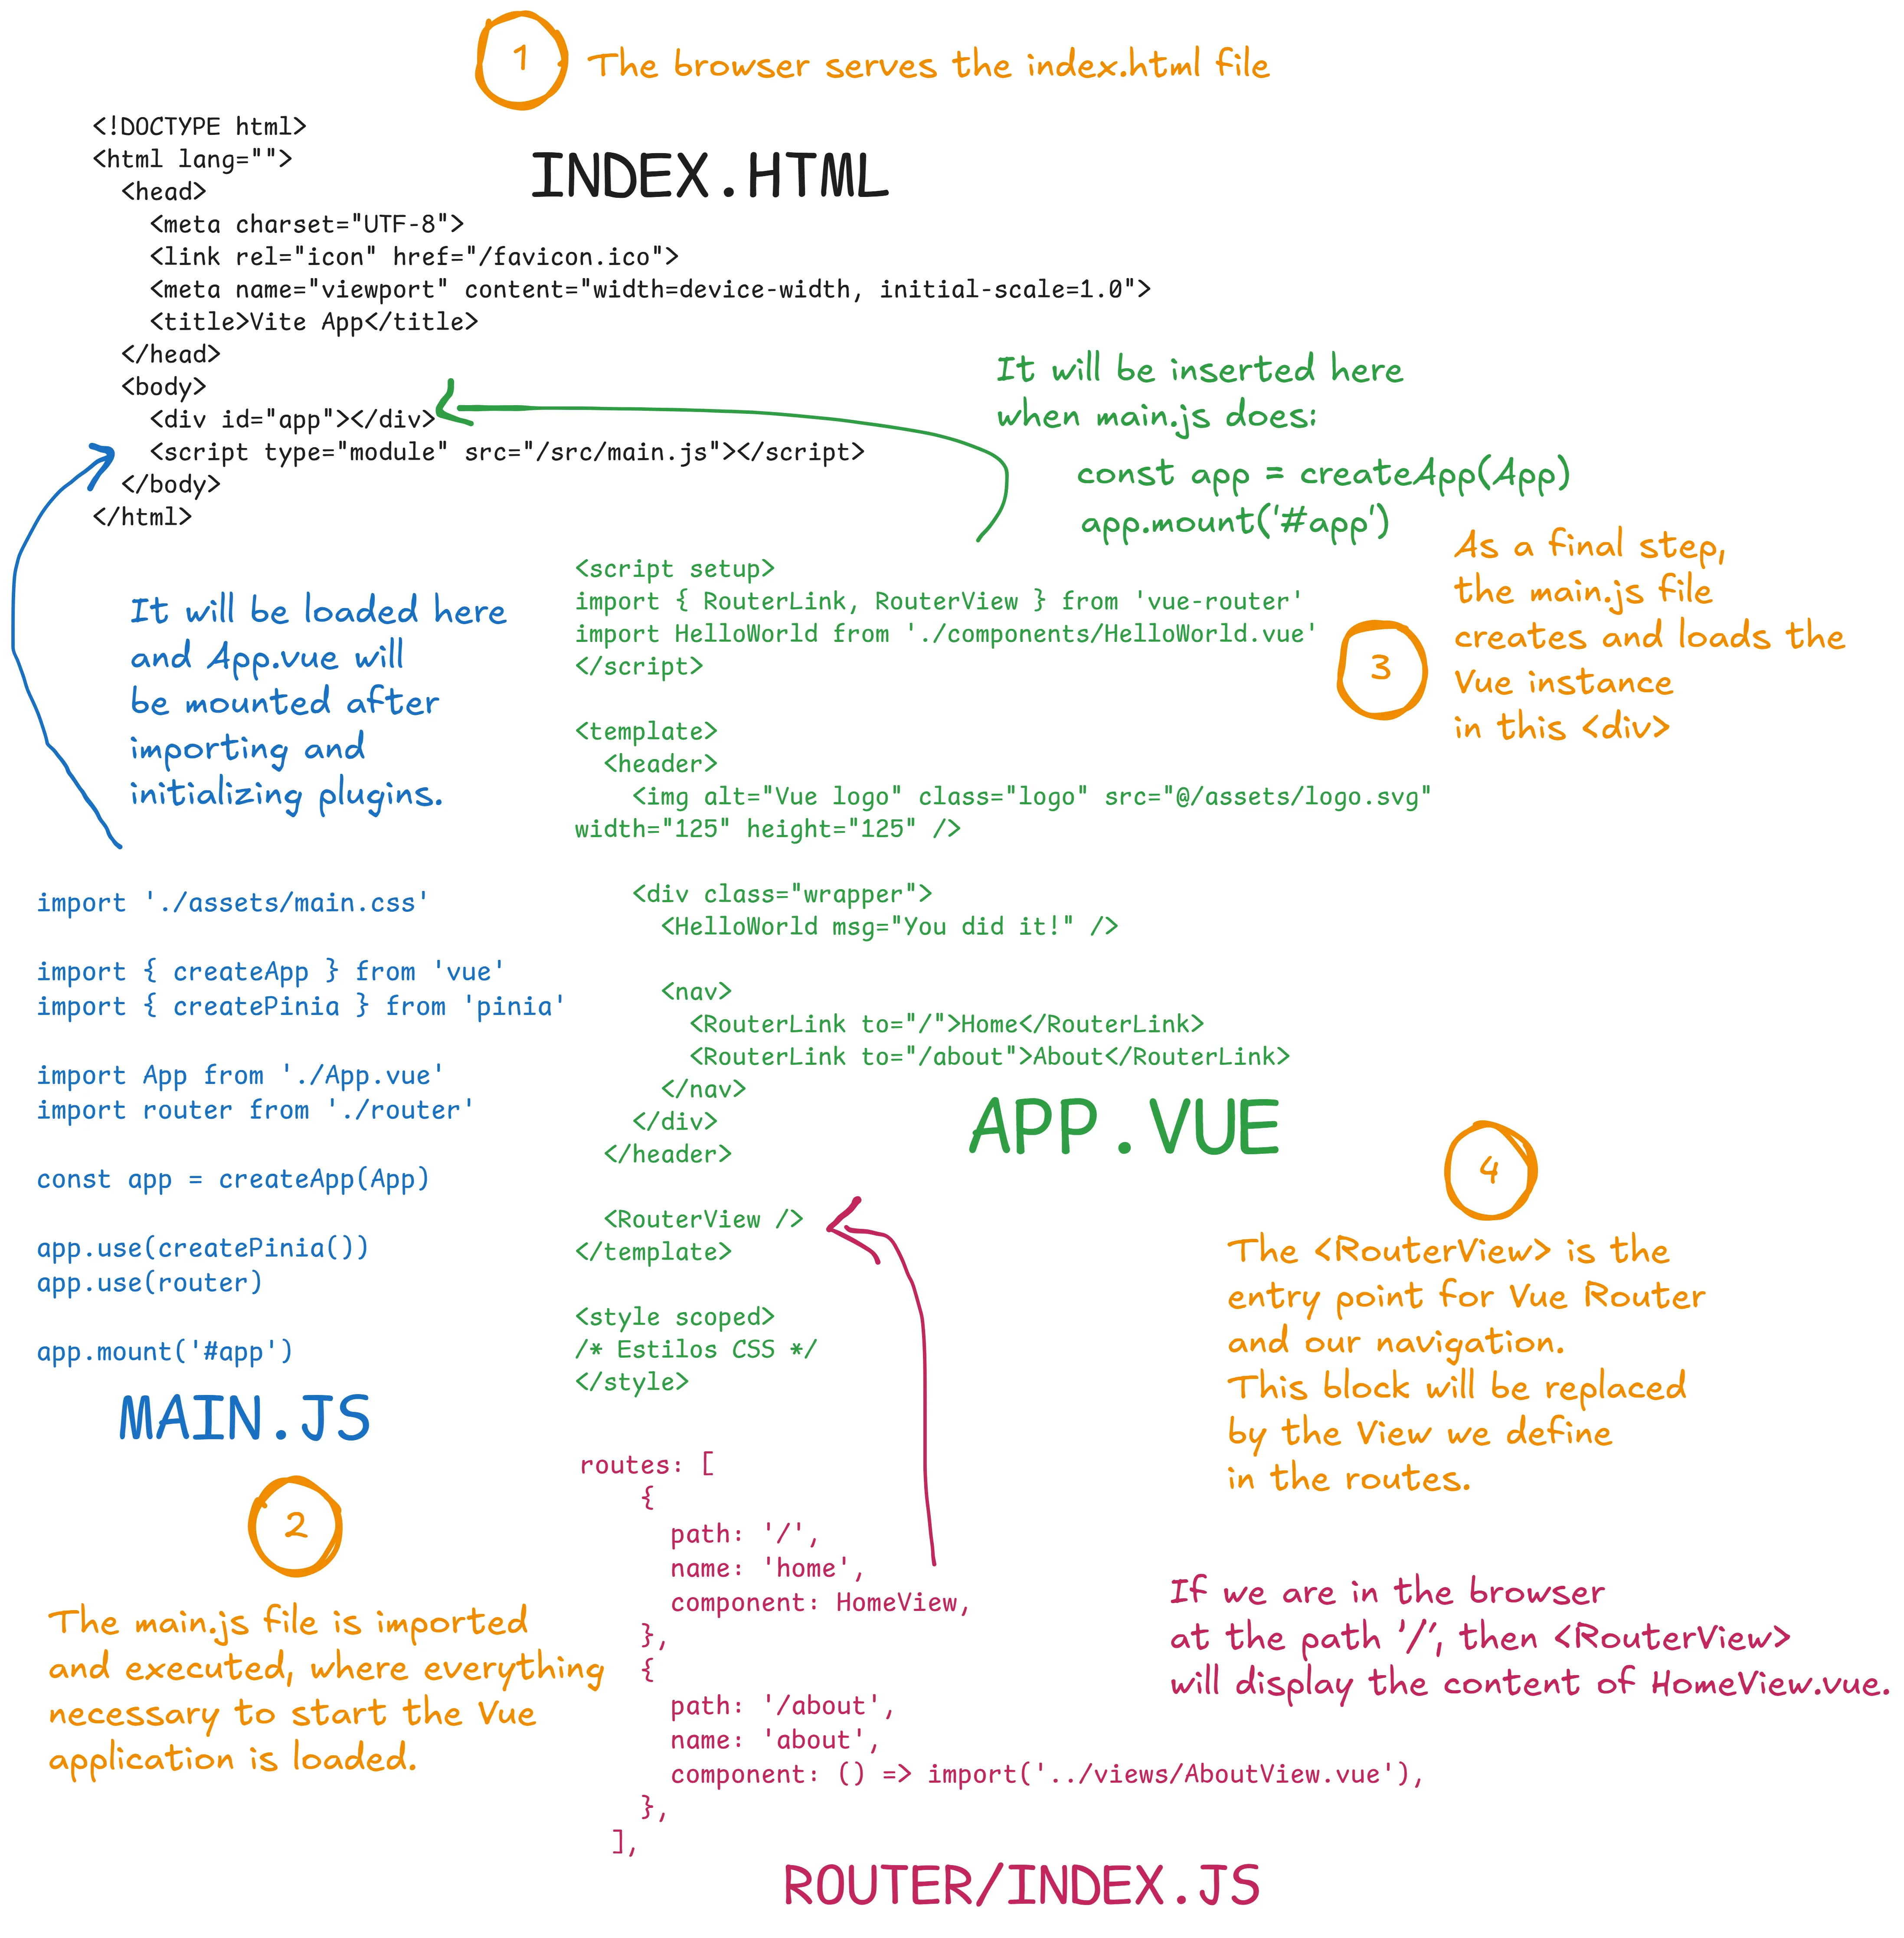 1
The browser serves the index.html file
<!DOCTYPE html>
<html lang="">
<head>
<meta charset="UTF-8">
<link rel="icon" href="/favicon.ico">
<meta name="viewport" content="width=device-width, initial-scale=1.0">
<title>Vite App</title>
</head>
<body>
<div id="app"></div>
<script type="module" src="/src/main.js"></script>
</body>
</html>
INDEX.HTML
It will be inserted here
when main.js does:
const app = createApp(App)
app.mount('#app')
It will be loaded here
and App.vue will
be mounted after
importing and
initializing plugins.
import './assets/main.css'
import { createApp } from 'vue'
import { createPinia } from 'pinia'
import App from './App.vue'
import router from './router'
const app = createApp(App)
app.use(createPinia())
app.use(router)
app.mount('#app')
MAIN.JS
2
The main.js file is imported
and executed, where everything
necessary to start the Vue
application is loaded.
<script setup>
import { RouterLink, RouterView } from 'vue-router'
import HelloWorld from './components/HelloWorld.vue'
</script>
<template>
<header>
<img alt="Vue logo" class="logo" src="@/assets/logo.svg"
width="125" height="125" />
<div class="wrapper">
<HelloWorld msg="You did it!" />
<nav>
<RouterLink to="/">Home</RouterLink>
<RouterLink to="/about">About</RouterLink>
</nav>
</div>
</header>
<RouterView />
</template>
<style scoped>
/* Estilos CSS */
</style>
APP.VUE
3
As a final step,
the main.js file
creates and loads the
Vue instance
in this <div>
4
The <RouterView> is the
entry point for Vue Router
and our navigation.
This block will be replaced
by the View we define
in the routes.
routes: [
{
path: '/',
name: 'home',
component: HomeView,
},
{
path: '/about',
name: 'about',
component: () => import('../views/AboutView.vue'),
},
],
ROUTER/INDEX.JS
If we are in the browser
at the path '/', then <RouterView>
will display the content of HomeView.vue.